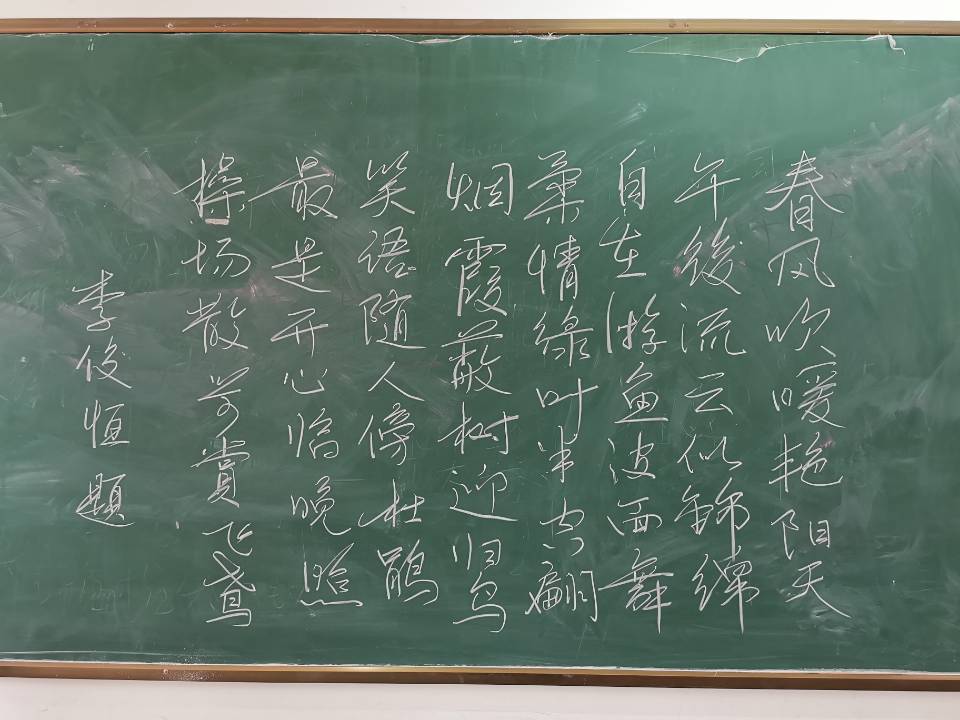 春风吹暖艳阳天
午後流云似锦绵
自在游鱼波面舞
柔情绿叶半空翩
烟霞蔽树迎归鸟
笑语随人傍杜鹃
最是开心临晚照
操场散步赏飞鸢
李俊恒题